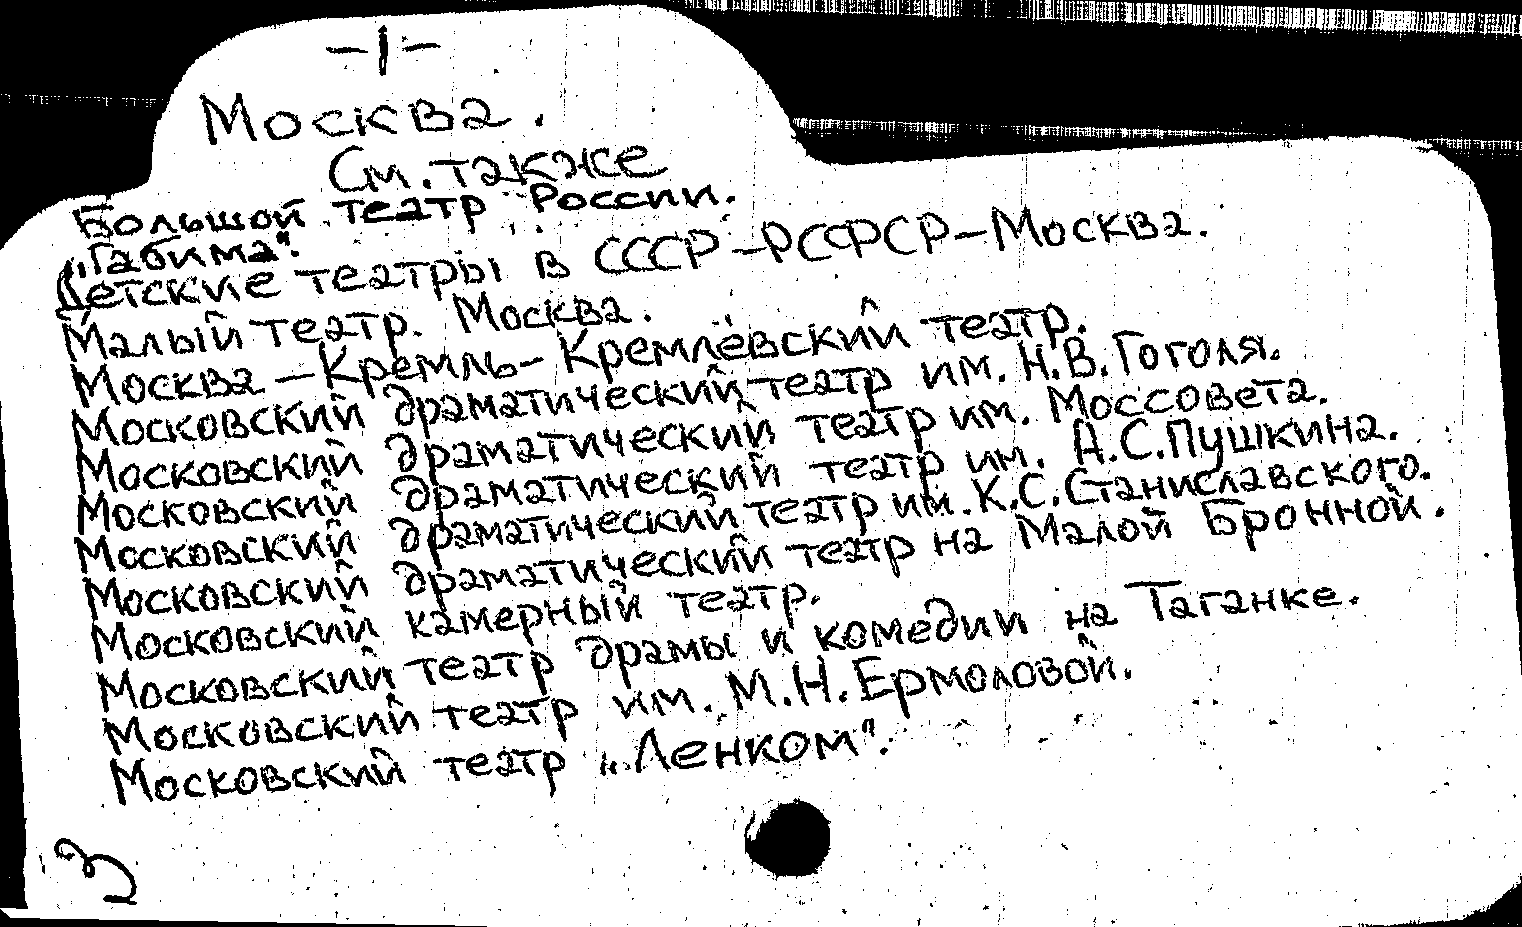 -1-
Москва.
См. также
Большой театр России.
„Габима".
Детские театры в СССР-РСФСР-Москва.
Малый театр. Москва.
Москва-Кремль-Кремлёвский театр.
Московский драматический театр им. Н.В.Гоголя.
Московский драматический театр им. Моссовета.
Московский драматический театр им. А.С.Пушкина.
Московский драматический театр им. К.С.Станиславского.
Московский драматический театр на Малой Бронной.
Московский камерный театр.
Московский театр драмы и комедии на Таганке.
Московский театр им. М.Н.Ермоловой.
Московский театр „Ленком".